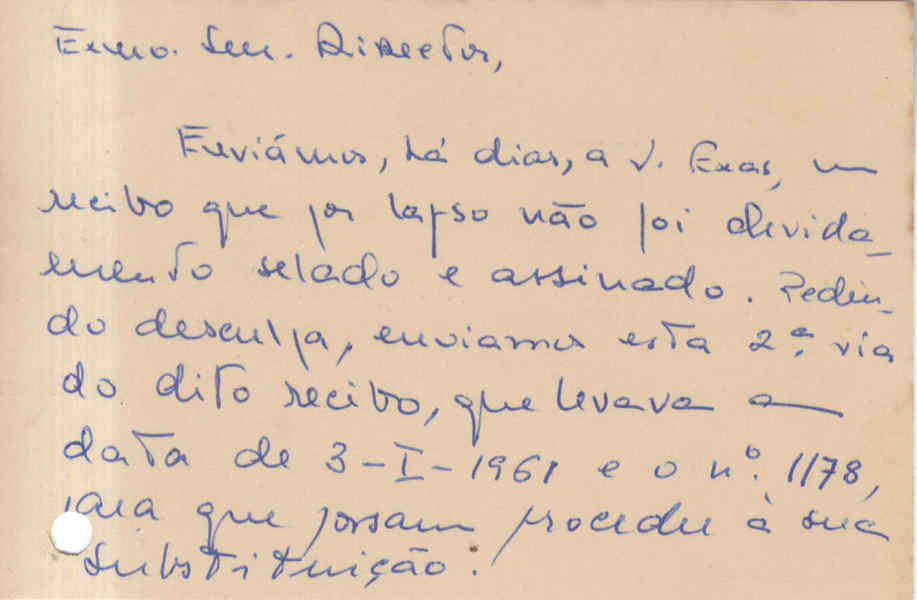 Exmo. Snr. Director,
Enviámos, há dias, a V. Exas, um
recibo que por lapso não foi devida-
mente selado e assinado. Pedin-
do desculpa, enviamos esta 2.ª via
do dito recibo, que levava a
data de 3-I-1961 e o nº. 1178,
para que possam proceder à sua
substituição.